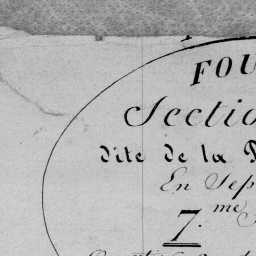 FOU
Sectio
dite de la
En Sep
7.me